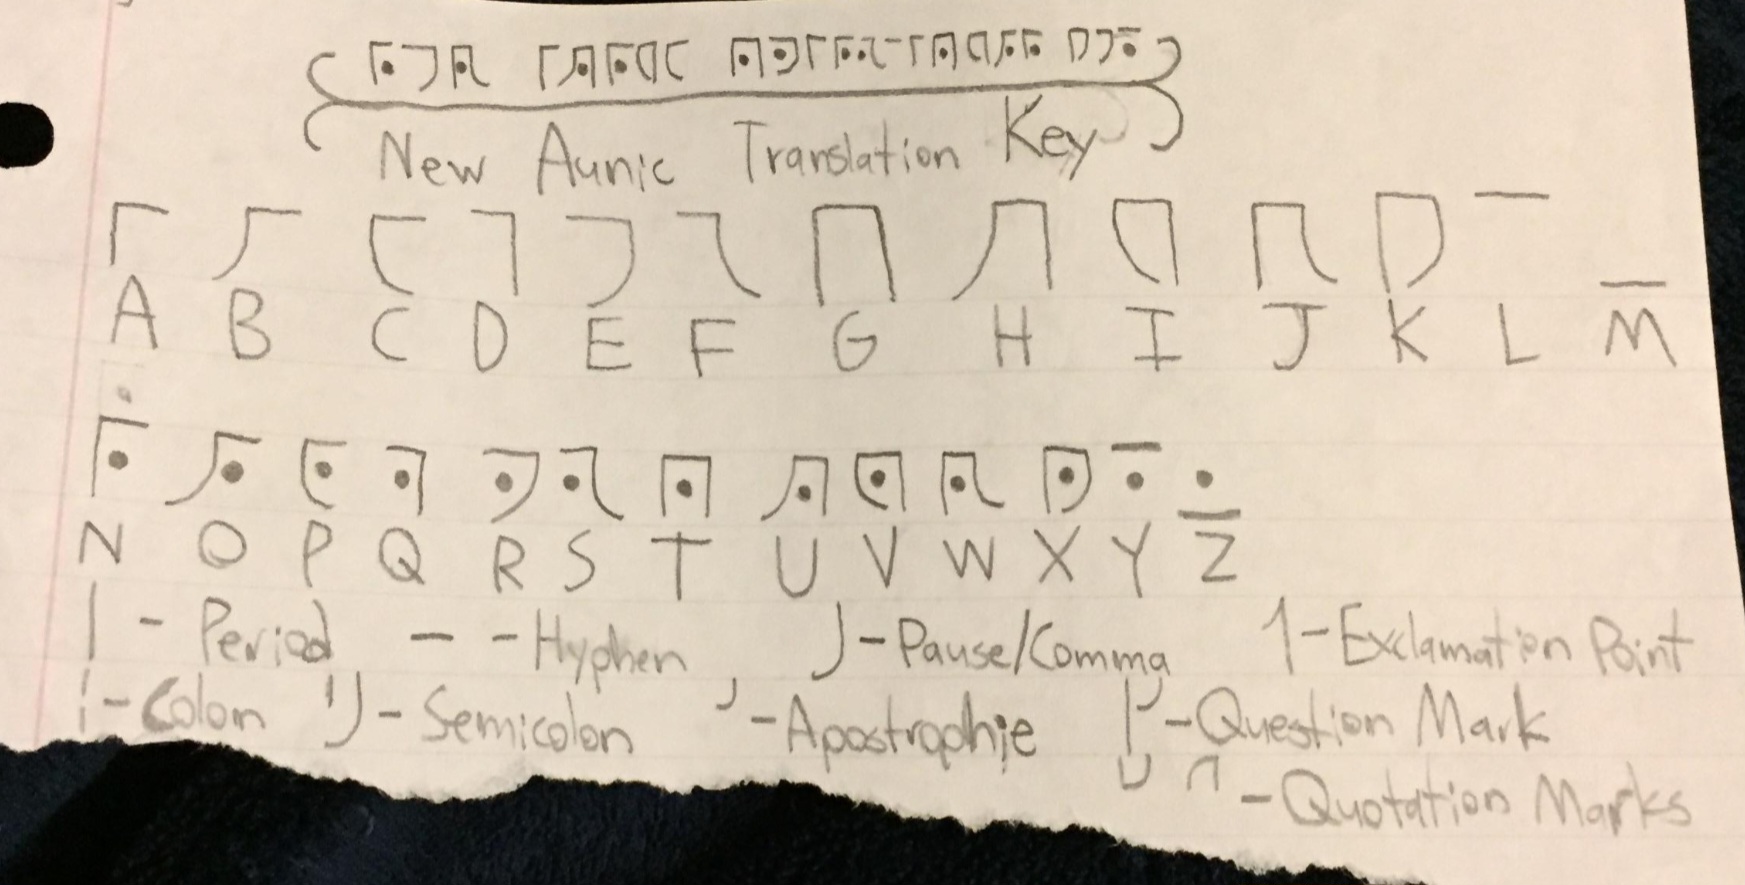 New Aunic Translation Key
A B C D E F G H I J K L M
N O P Q R S T U V W X Y Z
| - Period — - Hyphen ⌡ - Pause/Comma 1 - Exclamation Point
¦ - Colon - Semicolon - Apostrophie - Question Mark
- Quotation Marks